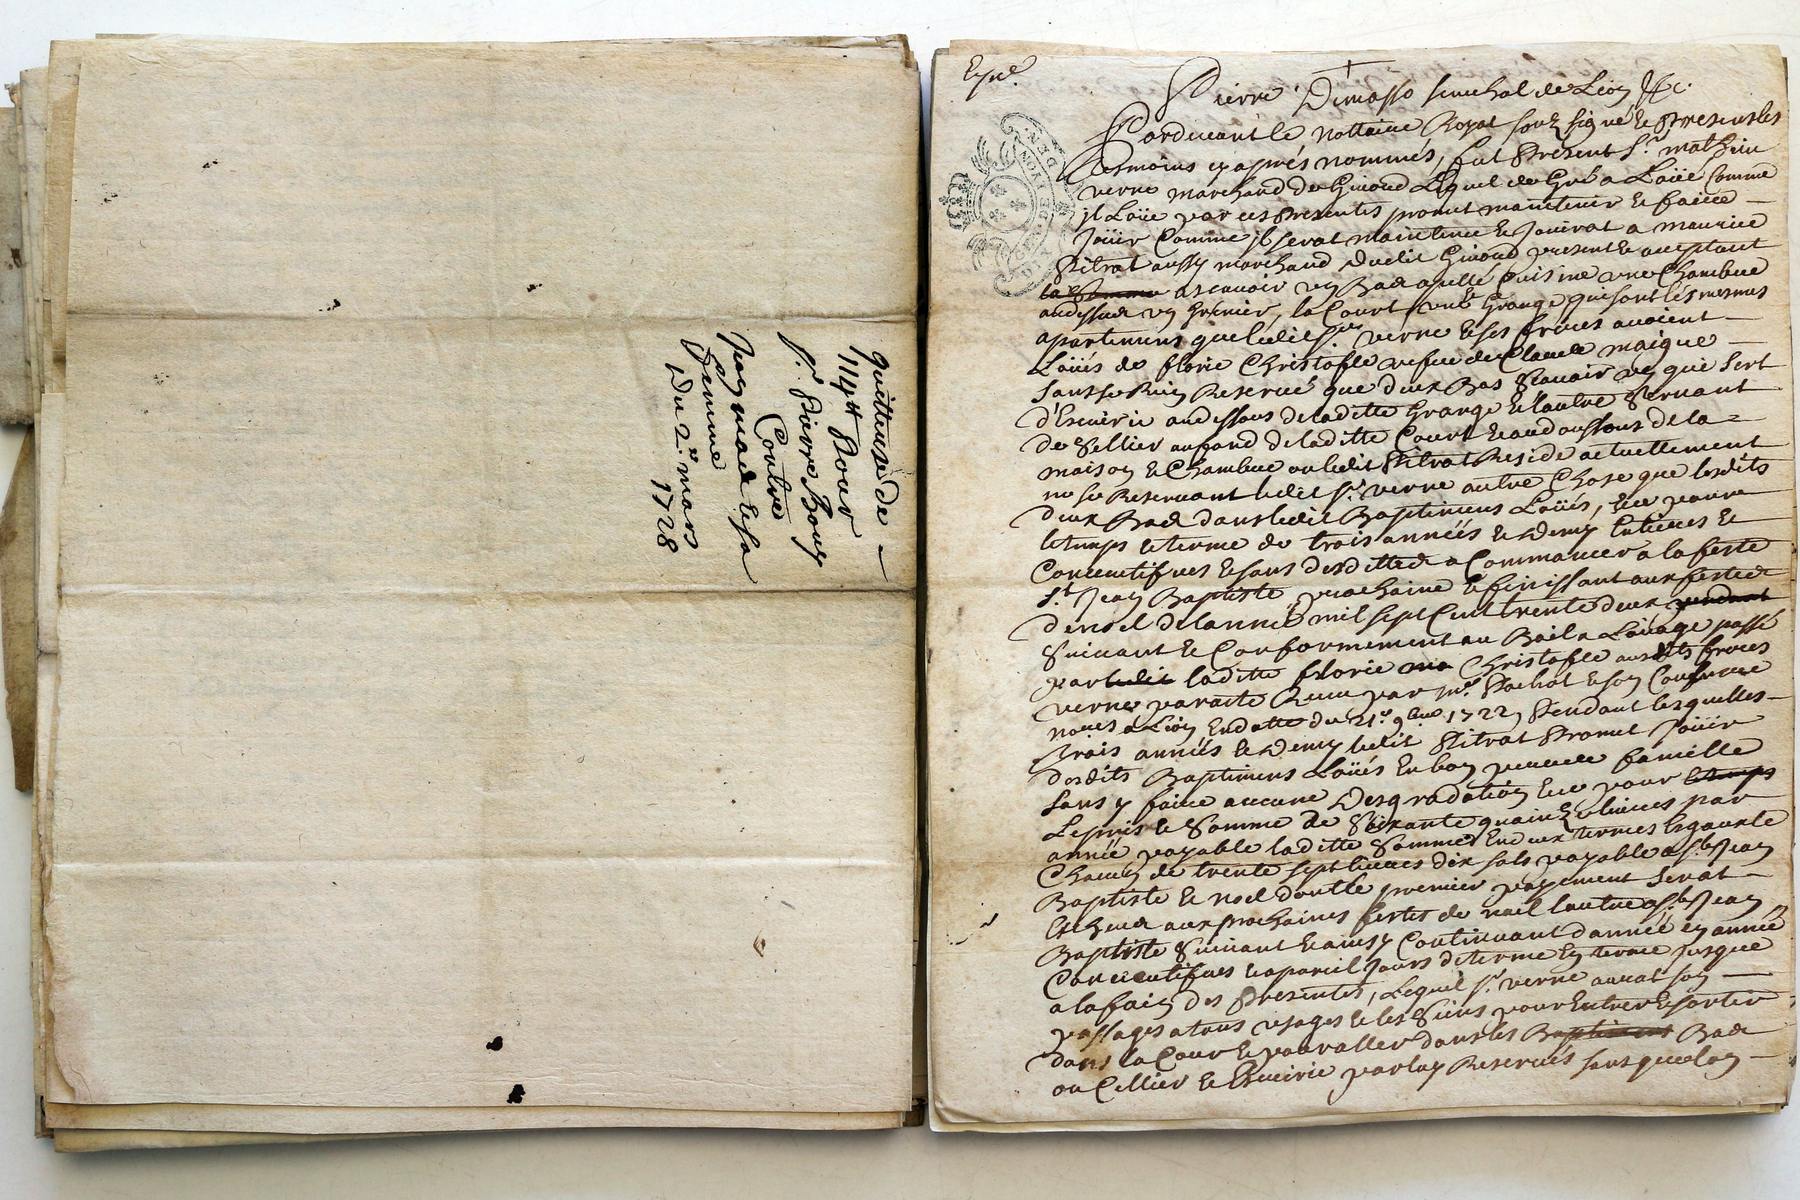 quittense de
114tt pour
Sr. Pierre Bouy
Contre
Jean made & sa
femme
Du 2e mars
1728
Expné.
Pierre Dimasso senechal de Lion &c.
Pardeuant le nottaire Royal souz signé & presents les
tesmoins cy aprés nommés, fut present Sr. mathieu
verne marchand de Givord Lequel de Gré a Loüé Comme
il Loüe par ces presentes promet maintenir & faire
Joüir Comme il serat maintenue & Jouirat a maurice
Pitrat aussy marchand dudit Givord present & acceptant
la Somme ascauoir un Bas apellé Cuisine une Chambre
audessus un Grenier, la Court & une Grange qui sont les mesmes
apartemens que ledit Sr. verne & ses freres auoient
Loüés de florie Christofle vefue de Claude maigue
sans se Rien Reserué que deux Bas scauoir un qui sert
d'Escuirie audessous de laditte Grange & l'autre seruant
de Sellier au fond de laditte Court & audessous de la
maison & Chambre ou ledit Pitrat Reside actuellement
ne se Reseruant ledit Sr. verne autre Chose que lesdits
deux Bas dans ledit Baptimens Loüés, & ce pour
le temps & terme de trois années & demy Entieres &
Consecutifues & sans desditte a Commancer a la feste
St. Jean Baptiste prochaine & finissant aux festes
de noel de lannée mil sept Cent trente deux pendant
Suiuant & Conformement au Bail a Loüage passé
par ledit laditte florie Christofle ausdits freres
verne par acte Receu par me. Pachot & son Confrere
nores a Lion En datte du 21e. 9bre 1722, Pendant lesquelles
Trois années & demy ledit Pitrat Promet Joüir
desdits Baptimens Loüés En bon pere de famille
sans y faire aucune Desgradation & ce pour le temps
Le prix & Somme de Soixante quinze liures par
année payable laditte Somme En deux termes Esgaux de
Chacun de trente sept liures dix sols payable a St. Jean
Baptiste & noel dont le premier payement serat
Escheu aux prochaines festes de noel l'autre a St. Jean
Baptiste Suiuant & ainsy Continuant d'année en année
Consecutifues & a pareil Jours de terme En terme Jusque
a la fain des Presentes, Lequel Sr. verne aurat son
passages a tous usages & les Siens pour Entrer & sortir
dans la Cour & pour aller dans les Baptimens Bas
ou Cellier & Escuirie par luy Reserués sans que lon